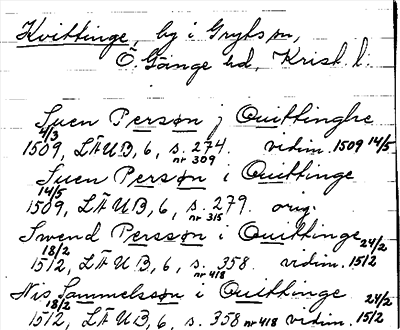 Kvittinge, by i Gryts sn,
Ö. Göinge hd, Krist. l:
Suen Person j Quittinghe
4/3 1509, LÄUB, 6, s. 274. nr 309 vidim. 1509 14/5
Suen Person i Quittinge
14/5 1509, LÄUB, 6, s. 279. nr 315 orig.
Swend Persson i Quittinge
18/2 1512, LÄUB, 6, s. 358. nr 418 vidim. 24/2 1512
Nis Sammelsson i Quittinge
18/2 1512, LÄUB, 6, s. 358 nr 418 vidim. 24/2 1512